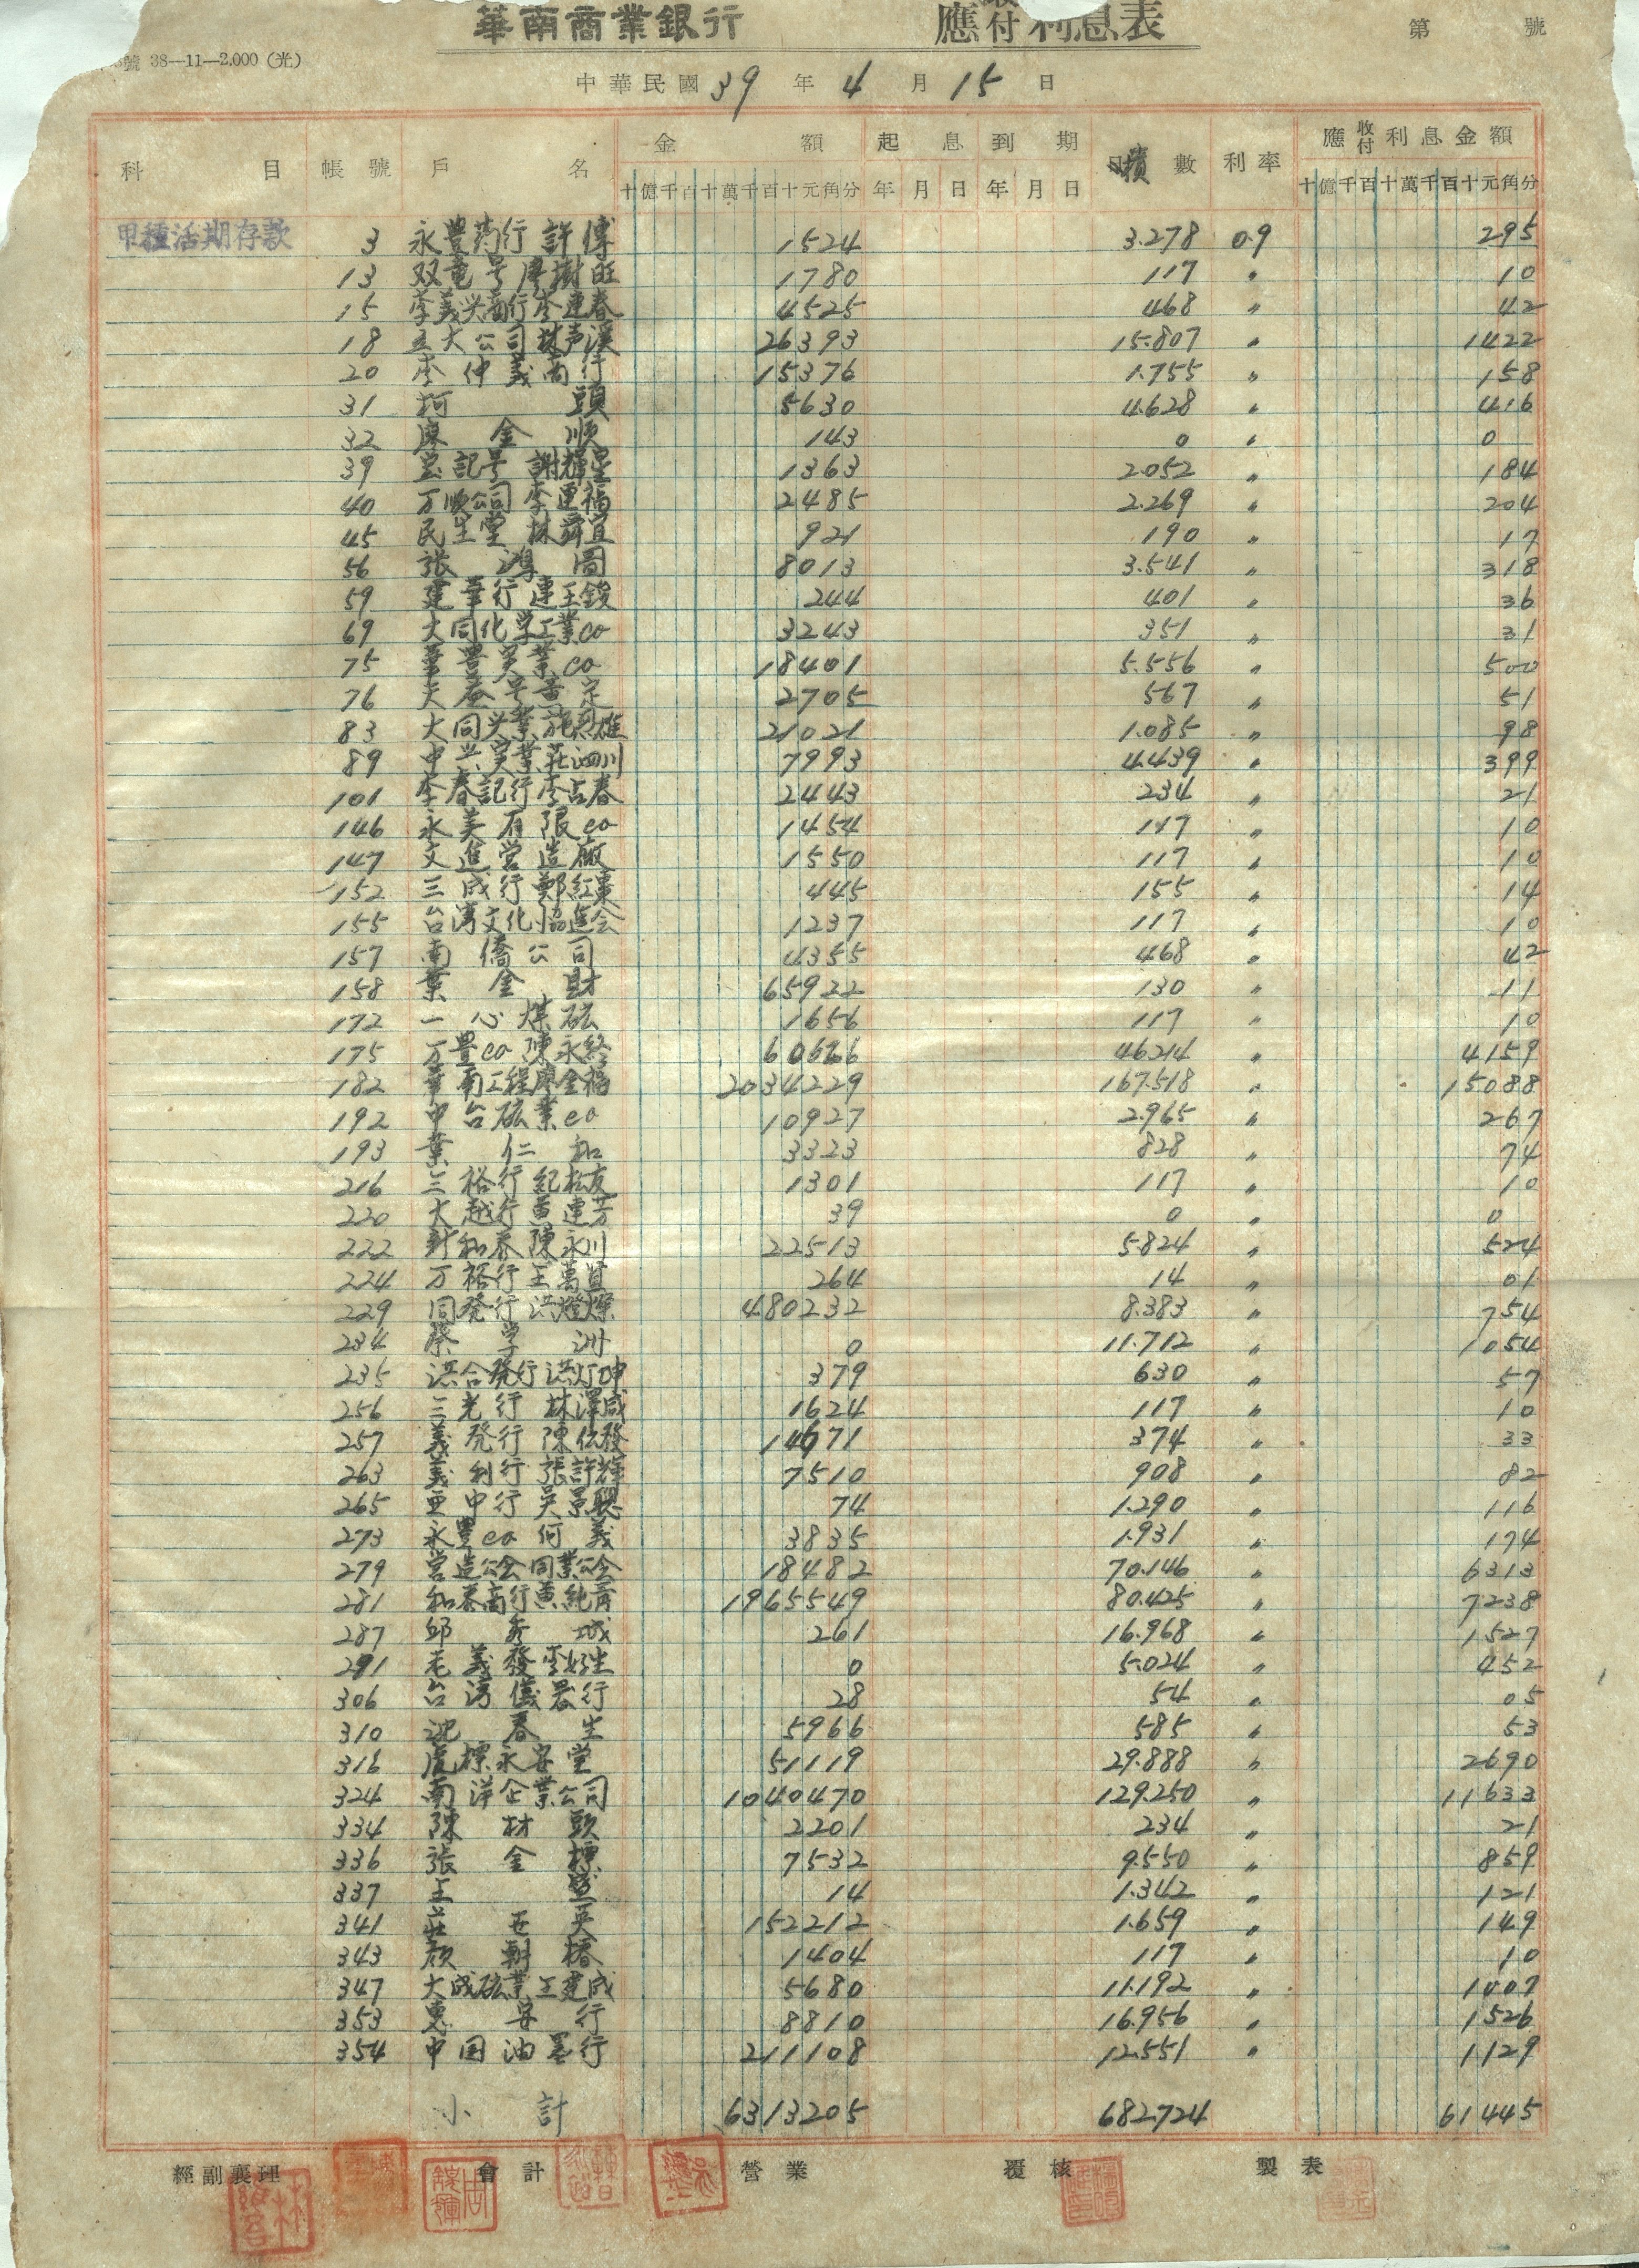 華南商業銀行 應收付利息表 第 號
號 38—11—2.000 (光)
中華民國 39 年 4 月 15 日
科 目 帳號 戶 名 金 額 起息到期 積數 利率 應收付利息金額
十億千百十萬千百十元角分 年月日年月日 十億千百十萬千百十元角分
甲種活期存款 3 永豊行 許傳 1524 3.278 0.9 295
13 双竜号廖樹旺 1780 117 〃 10
15 李義兴商行李連春 4525 468 〃 42
18 立大公司林声溪 26393 15.807 〃 1422
20 李仲義商行 15376 1.755 〃 158
31 柯頭 5630 4.628 〃 416
32 廖金順 143 0 〃 0
39 宝記号 謝輝星 1363 2.052 〃 184
40 万順公司 李連福 2485 2.269 〃 204
45 民生堂 林舜宜 921 190 〃 17
56 張鴻圖 8013 3.541 〃 318
59 建華行連王鋑 244 401 〃 36
69 大同化学工業co 3243 351 〃 31
75 華豊実業co 18401 5.556 〃 500
76 大号定 2705 567 〃 51
83 大同兴業施烈雄 21021 1.085 〃 98
89 中兴実業莊泗川 7993 4.439 〃 399
101 李春記行李占春 2443 234 〃 21
146 永美有限co 1454 117 〃 10
147 文進営造廠 1550 117 〃 10
152 三成行鄭紅棗 445 155 〃 14
155 台湾文化協進会 1237 117 〃 10
157 南僑公司 4355 468 〃 42
158 葉金財 65922 130 〃 11
172 一心煤砿 1656 117 〃 10
175 万豊co陳永 60666 46.214 〃 4159
182 華南工程廖金福 2034229 167.518 〃 15088
192 中台砿業co 10927 2.965 〃 267
193 葉仁和 3323 828 〃 74
216 三裕行紀松友 1301 117 〃 10
220 大越行黄連芳 39 0 〃 0
222 新和泰陳永川 22513 5.824 〃 524
224 万裕行王萬賢 264 14 〃 01
229 同発行洪燈燦 480232 8.383 〃 754
234 蔡学洲 0 11.712 〃 1054
235 洪合発行洪灯坤 379 630 〃 57
256 三光行 林澤成 1624 117 〃 10
257 義発行陳伝發 14671 374 〃 33
263 義利行張許輝 7510 908 〃 82
265 亜中行吴景聰 74 1.290 〃 116
273 永豊co何義 3835 1.931 〃 174
279 営造公会同業公会 18482 70.146 〃 6313
281 和泰商行黄純青 1965549 80.425 〃 7238
287 邱秀城 261 16.968 〃 1527
291 毛義發李好生 0 5.024 〃 452
306 台湾儀器行 28 54 〃 05
310 沈春生 5966 585 〃 53
316 虎標永安堂 51119 29.888 〃 2690
324 南洋企業公司 1040470 129.250 〃 11633
334 陳材頭 2201 234 〃 21
336 張金標 7532 9.550 〃 859
337 王盛 14 1.342 〃 121
341 莊世英 152212 1.659 〃 149
343 顔朝椿 1404 117 〃 10
347 大成砿業王建成 5680 11.192 〃 1007
353 惠安行 8810 16.956 〃 1526
354 中国油墨行 211108 12.551 〃 1129
小計 6313205 682.724 61445
經副襄理 會計 營業 覆核 製表